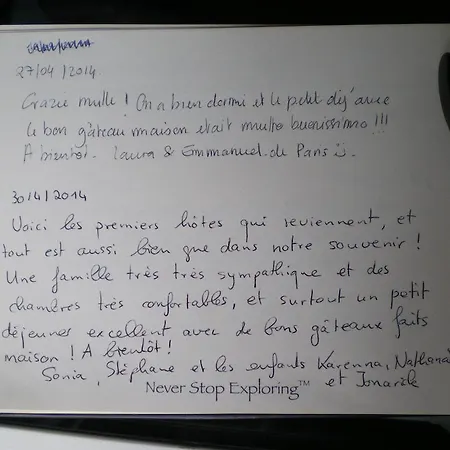 27/04/2014.
Grazie mille ! On a bien dormi et le petit dej' avec
le bon gâteau maison etait multo buenissimo !!!
A bientot. Laura & Emmanuel. de Paris
30/4/2014
Voici les premiers hôtes qui reviennent, et
tout est aussi bien que dans notre souvenir !
Une famille très très sympathique et des
chambres très confortables, et surtout un petit
déjeuner excellent avec de bons gâteaux faits
maison ! A bientôt !
Sonia, Stéphane et les enfants Karenna,
Never Stop Exploring™ et